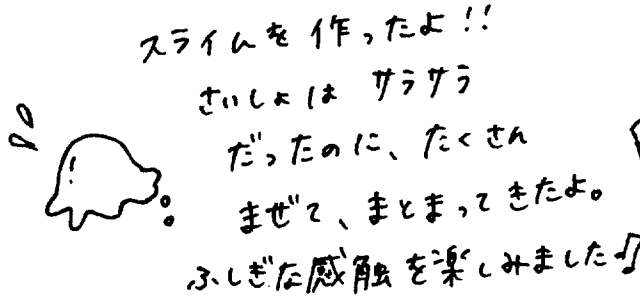 スライムを作ったよ!!
さいしょは サラサラ
だったのに、たくさん
まぜて、まとまってきたよ。
ふしぎな感触を楽しみました♫